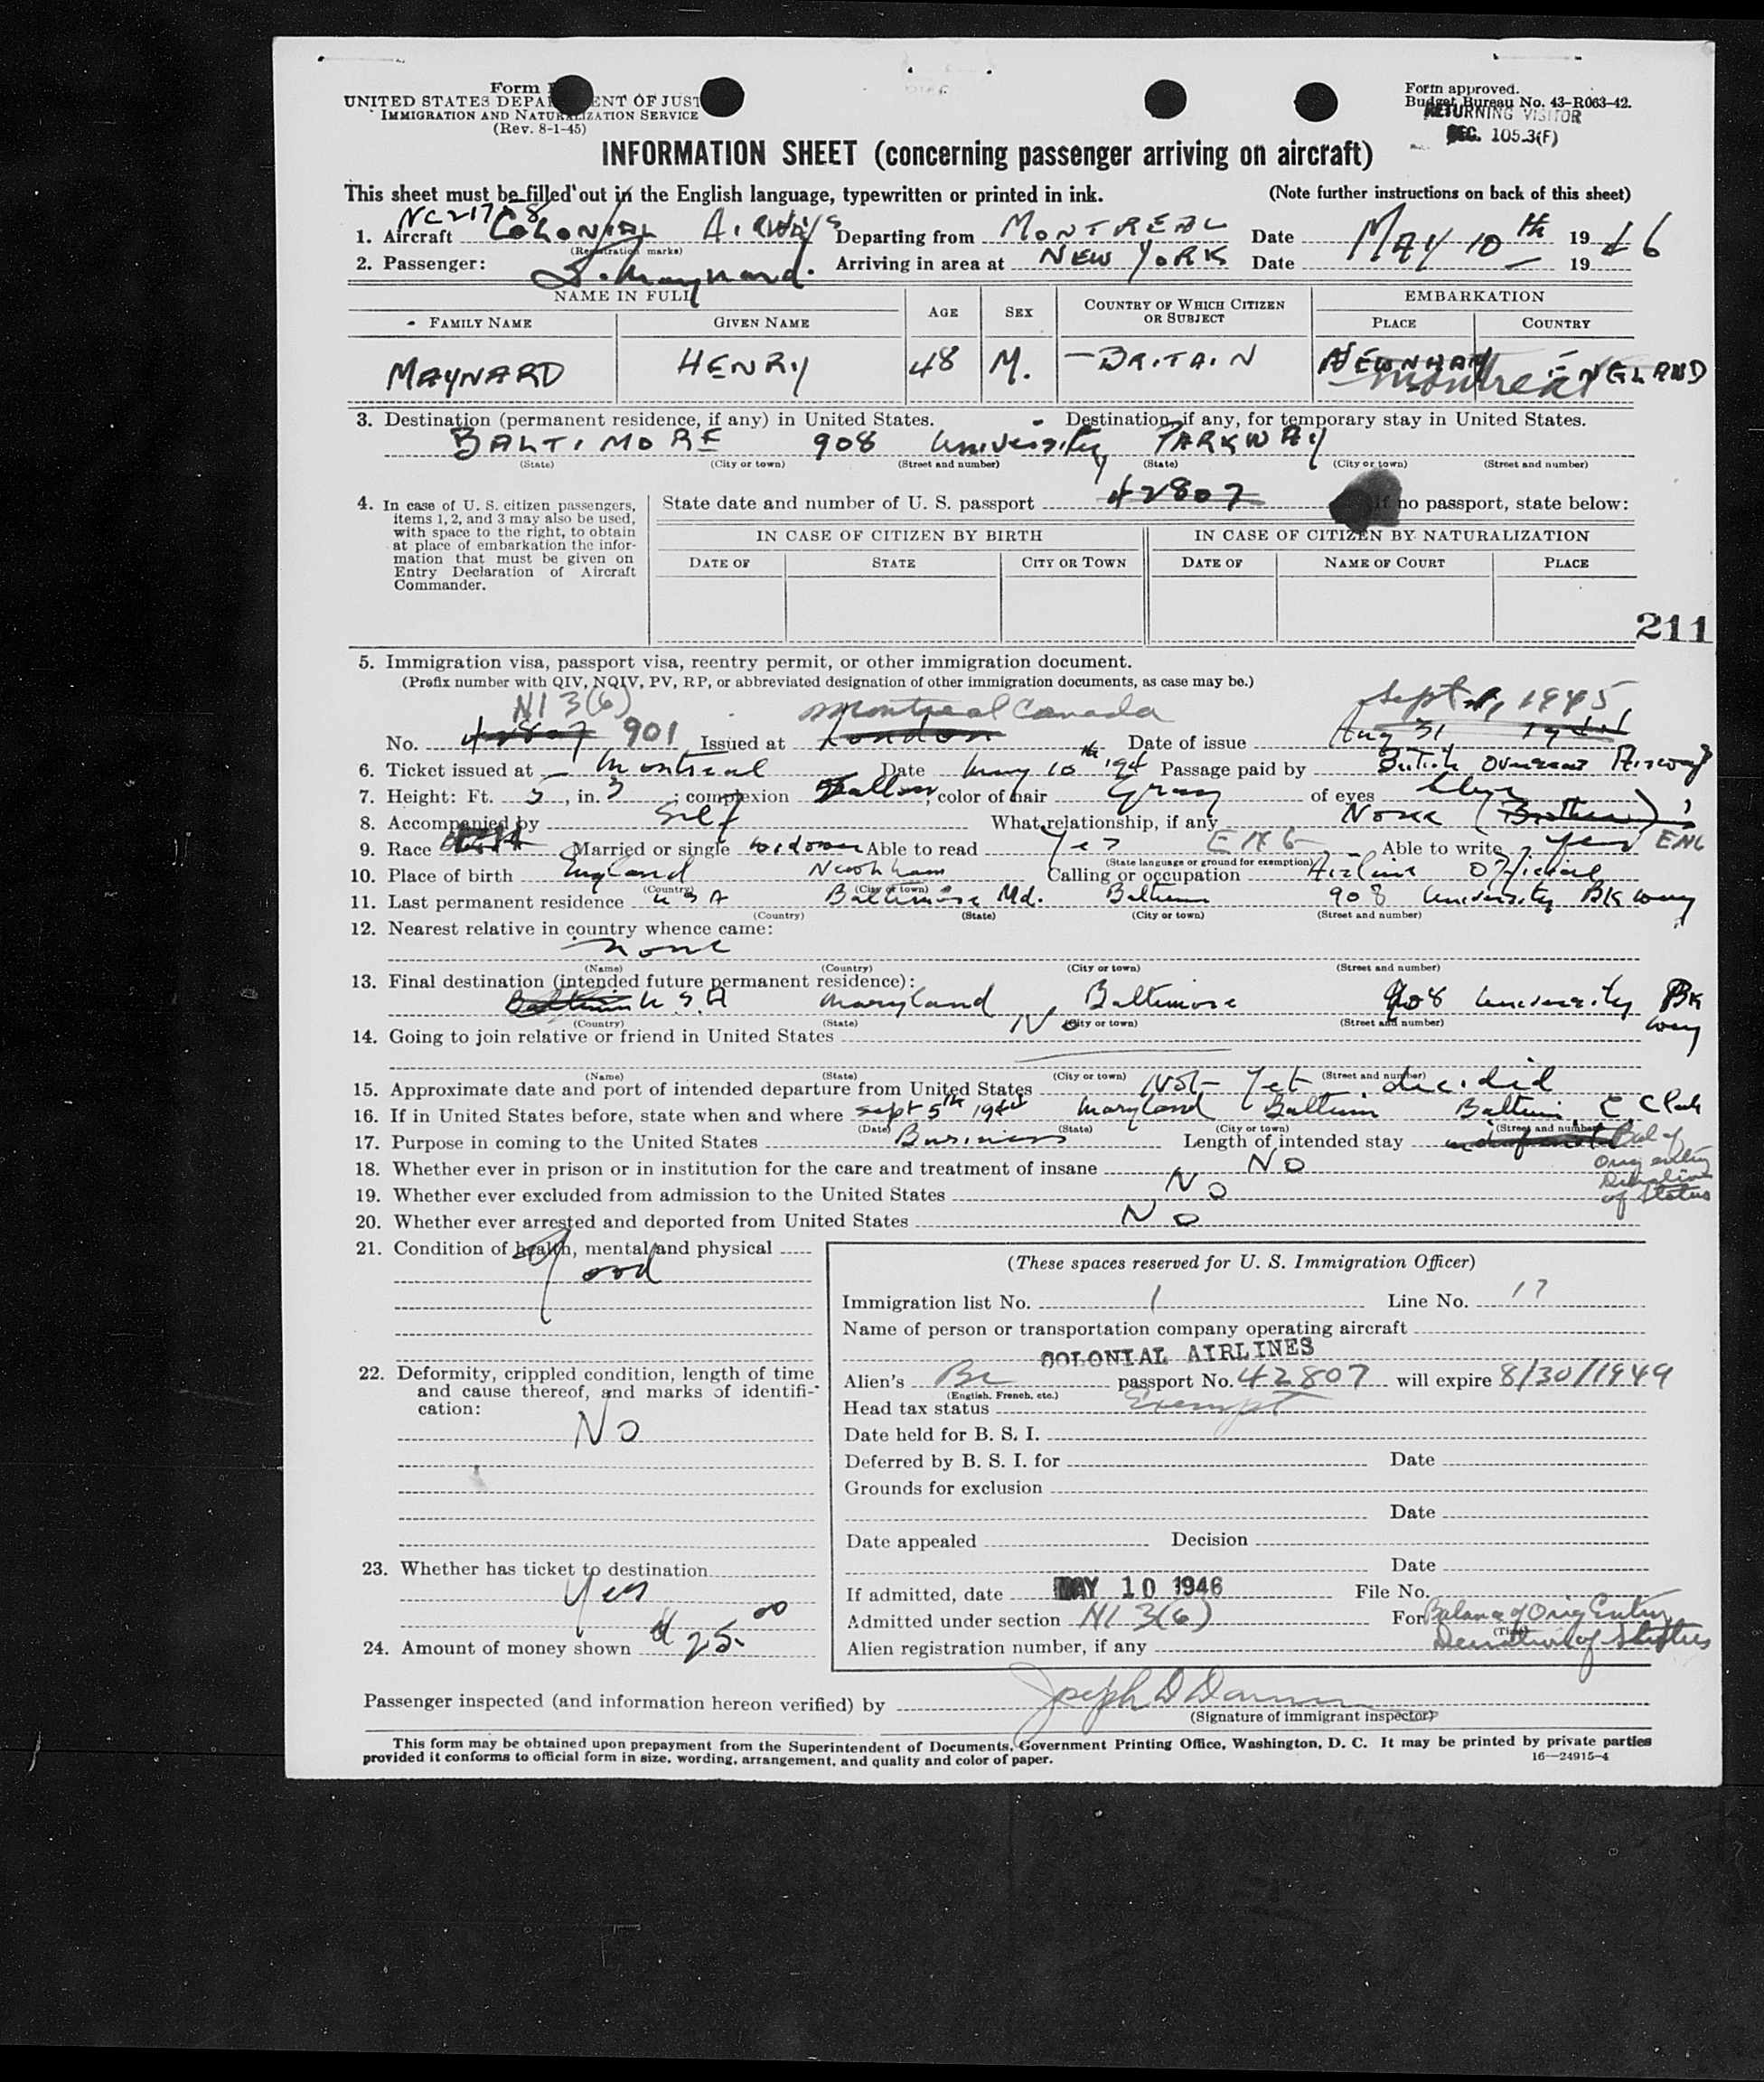 Form
UNITED STATES DEPA ENT OF JUST
IMMIGRATION AND NATURALIZATION SERVICE
(Rev. 8-1-45)
Form approved.
Budget Bureau No. 43-R063-42.
RETURNING VISITOR
SEC. 105.3(F)
INFORMATION SHEET (concerning passenger arriving on aircraft)
This sheet must be filled out in the English language, typewritten or printed in ink. (Note further instructions on back of this sheet)
1. Aircraft COLONIAL AIRWAYS Departing from MONTREAL Date MAY 10th 1946
(Registration marks)
2. Passenger: Maynard. Arriving in area at NEW YORK Date 19
NAME IN FULL AGE SEX COUNTRY OF WHICH CITIZEN OR SUBJECT EMBARKATION
FAMILY NAME GIVEN NAME PLACE COUNTRY
MAYNARD HENRY 48 M. BRITAIN NEWNHAM Montreal ENGLAND
3. Destination (permanent residence, if any) in United States. Destination, if any, for temporary stay in United States.
BALTIMORE 908 University PARKWAY
(State) (City or town) (Street and number) (State) (City or town) (Street and number)
4. In case of U. S. citizen passengers, items 1, 2, and 3 may also be used, with space to the right, to obtain at place of embarkation the information that must be given on Entry Declaration of Aircraft Commander.
State date and number of U. S. passport 42807 If no passport, state below:
IN CASE OF CITIZEN BY BIRTH IN CASE OF CITIZEN BY NATURALIZATION
DATE OF STATE CITY OR TOWN DATE OF NAME OF COURT PLACE
211
5. Immigration visa, passport visa, reentry permit, or other immigration document.
(Prefix number with QIV, NQIV, PV, RP, or abbreviated designation of other immigration documents, as case may be.)
NI 3(6) Montreal Canada Sept 1, 1945
No. 42807 901 Issued at London Date of issue Aug 31 1944
6. Ticket issued at Montreal Date May 10th 194 Passage paid by British Overseas Airways
7. Height: Ft. 5, in. 3; complexion Sallow, color of hair Gray of eyes
8. Accompanied by Self What relationship, if any None (Brother)
9. Race Married or single widower Able to read Yes ENG Able to write yes ENG
(State language or ground for exemption)
10. Place of birth England Newnham Calling or occupation Airline Official
(Country) (City or town)
11. Last permanent residence USA Baltimore Md. 908 University Pk way
(Country) (State) (City or town) (Street and number)
12. Nearest relative in country whence came:
None
(Name) (Country) (City or town) (Street and number)
13. Final destination (intended future permanent residence):
U.S.A Maryland Baltimore 908 University Pk way
(Country) (State) (City or town) (Street and number)
14. Going to join relative or friend in United States No
(Name) (State) (City or town) (Street and number)
15. Approximate date and port of intended departure from United States Not Yet decided
16. If in United States before, state when and where Sept 5th 1944 Maryland
(Date) (State) (City or town) (Street and number)
17. Purpose in coming to the United States Business Length of intended stay Bal of Orig entry Duration of Status
18. Whether ever in prison or in institution for the care and treatment of insane NO
19. Whether ever excluded from admission to the United States NO
20. Whether ever arrested and deported from United States NO
21. Condition of health, mental and physical
Good
22. Deformity, crippled condition, length of time and cause thereof, and marks of identification:
NO
23. Whether has ticket to destination
Yes
24. Amount of money shown $ 25.00
(These spaces reserved for U. S. Immigration Officer)
Immigration list No. 1 Line No. 17
Name of person or transportation company operating aircraft
COLONIAL AIRLINES
Alien's Br passport No. 42807 will expire 8/30/1949
(English, French, etc.)
Head tax status Exempt
Date held for B. S. I.
Deferred by B. S. I. for Date
Grounds for exclusion
Date
Date appealed Decision
Date
If admitted, date MAY 10 1946 File No.
Admitted under section NI 3(6) For Balance of Orig Entry
(Time)
Alien registration number, if any Duration of Status
Passenger inspected (and information hereon verified) by Joseph D
(Signature of immigrant inspector)
This form may be obtained upon prepayment from the Superintendent of Documents, Government Printing Office, Washington, D. C. It may be printed by private parties
provided it conforms to official form in size, wording, arrangement, and quality and color of paper. 16—24915-4